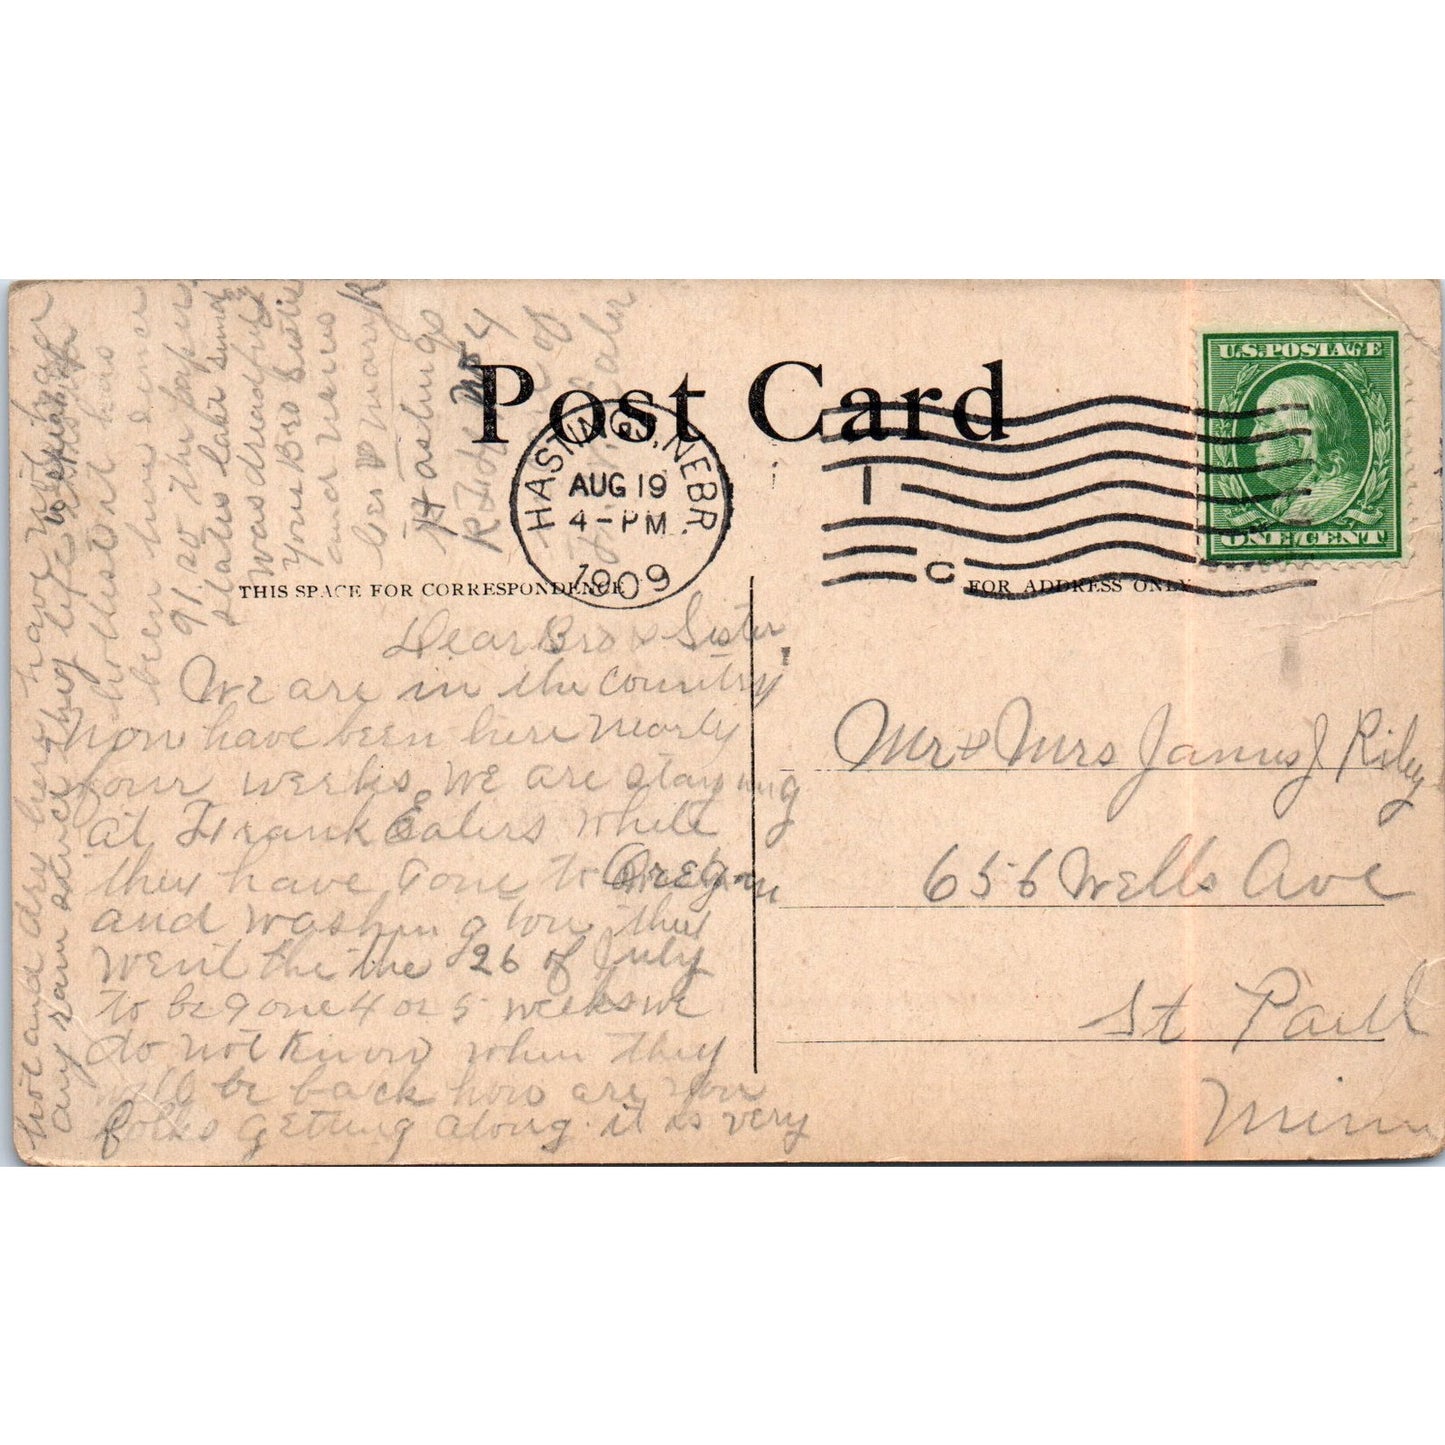 Post Card
HASTINGS, NEBR.
AUG 19
4-PM
1909
1
C
U.S. POSTAGE
ONE CENT
THIS SPACE FOR CORRESPONDENCE
FOR ADDRESS ONLY
Dear Bro & Sister
We are in the country
now have been here nearly
four weeks. We are staying
at Frank Ealers while
they have gone to Oregon
and Washington they
went the the 26 of July
to be gone 4 or 5 weeks we
do not know when they
will be back how are you
folks getting along. it is very
hot and dry here have not have
any rain since they left
hottest it has
been here since
91. so the paper
states
was dreadful
your Bro
and
Hastings
R F D No 4
of
Mr & Mrs James J Riley
656 Wells Ave
St Paul
Minn